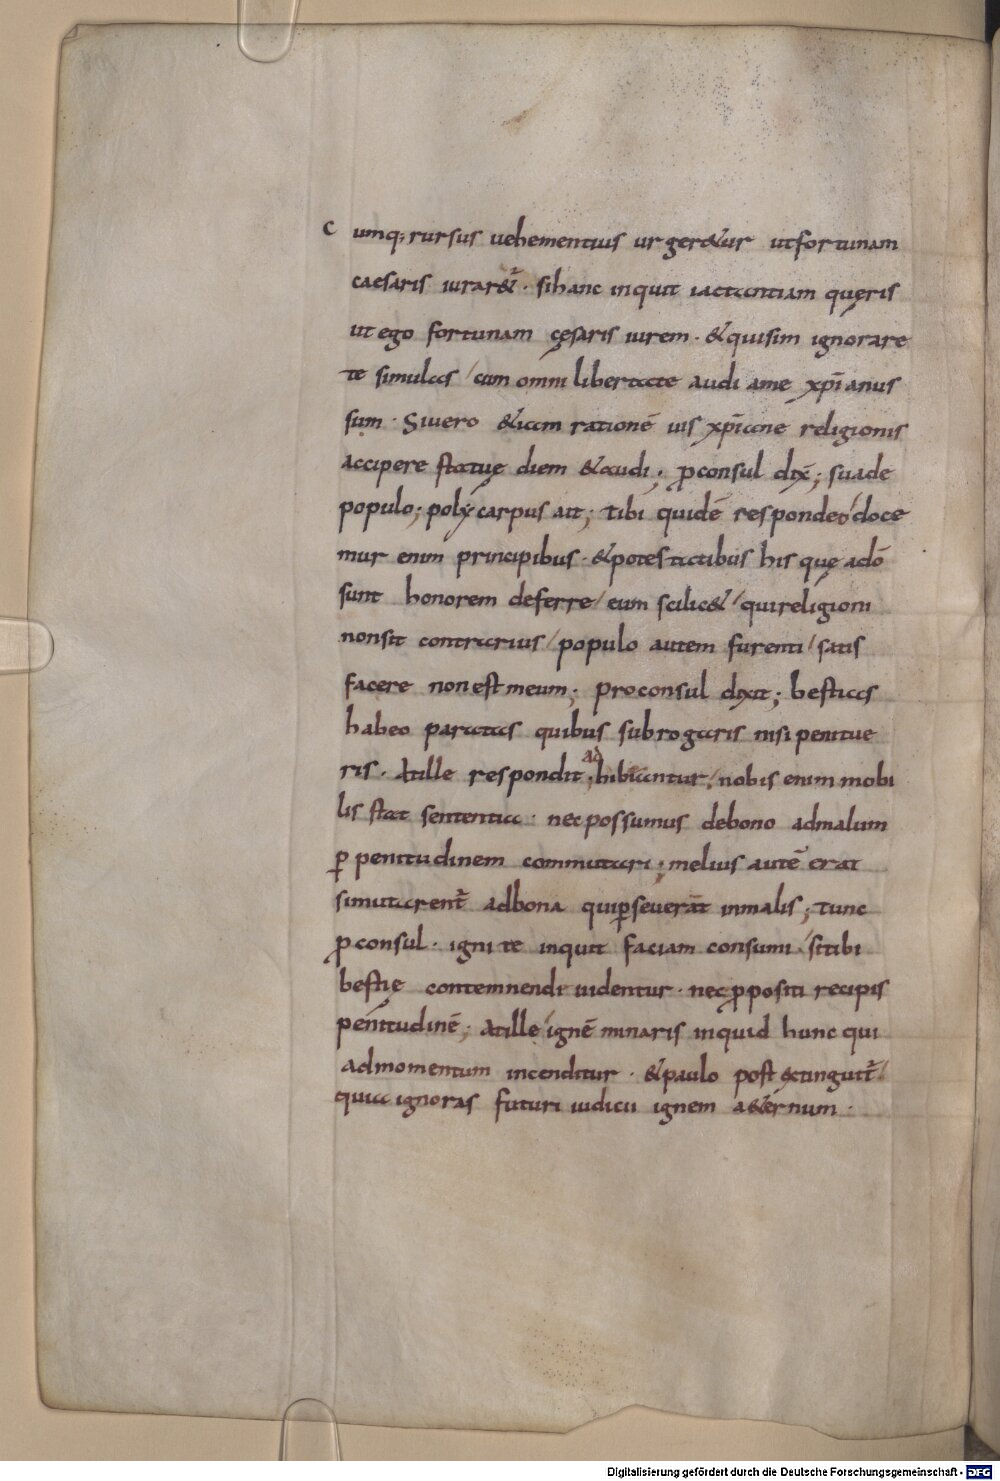 Cumq; rursus uehementius urger&ur utfortunam
caesaris iurar&̄ · sihanc inquit iactantiam quęris
ut ego fortunam cęsaris iurem · &quisim ignorare
te simulas / cum omni libertate audi ame xp̄ianus
sum · Siuero &iam rationē uis xp̄iane religionis
accipere statuę diem &audi ; ꝓconsul dix̄ ; suade
populo ; polycarpus ait ; tibi quidē respondeo / doce
mur enim principibus · &potestatibus his quę adō
sunt honorem deferre / eum scilic& / quireligioni
nonsit contrarius / populo autem furenti / satis
facere non est meum ; proconsul dixit ; bestias
habeo paratas quibus subrogaris nisi penitue
ris · Atille respondit ; adhibiantur / nobis enim mobi
lis stat sententia · nec possumus debono admalum
ꝑ penitudinem commutari ; melius autē erat
simutarent̄ adbona quiꝑseuerāt inmalis ; tunc
ꝓconsul · igni te inquit faciam consumi / sitibi
bestię contemnendi uidentur · nec ꝓpositi recipis
penitudinē ; Atille / ignē minaris inquid hunc qui
admomentum incenditur · &paulo post extinguit̄ /
quia ignoras futuri iudicii ignem a&ernum ·
Digitalisierung gefördert durch die Deutsche Forschungsgemeinschaft - DFG